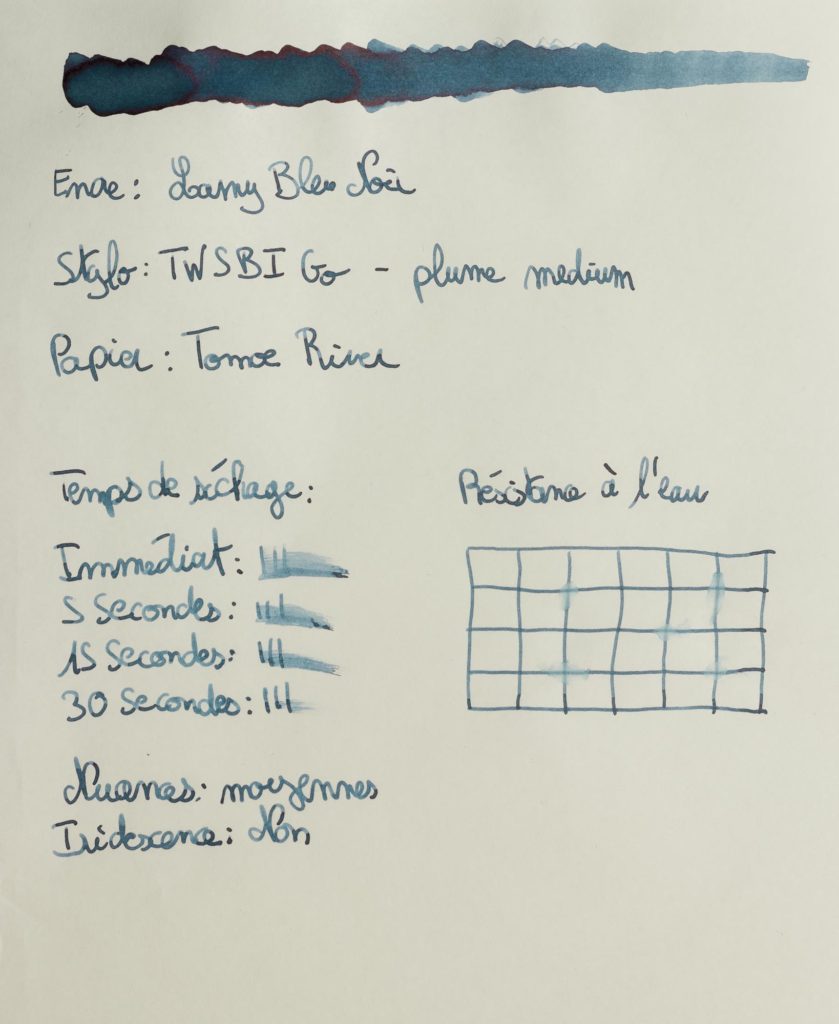 Encre : Lamy Bleu Noir
Stylo : TWSBI Go - plume medium
Papier : Tomoe River
Temps de séchage :
Résistance à l'eau
Immédiat :
5 Secondes :
15 Secondes :
30 Secondes :
Nuances : moyennes
Iridescence : Non